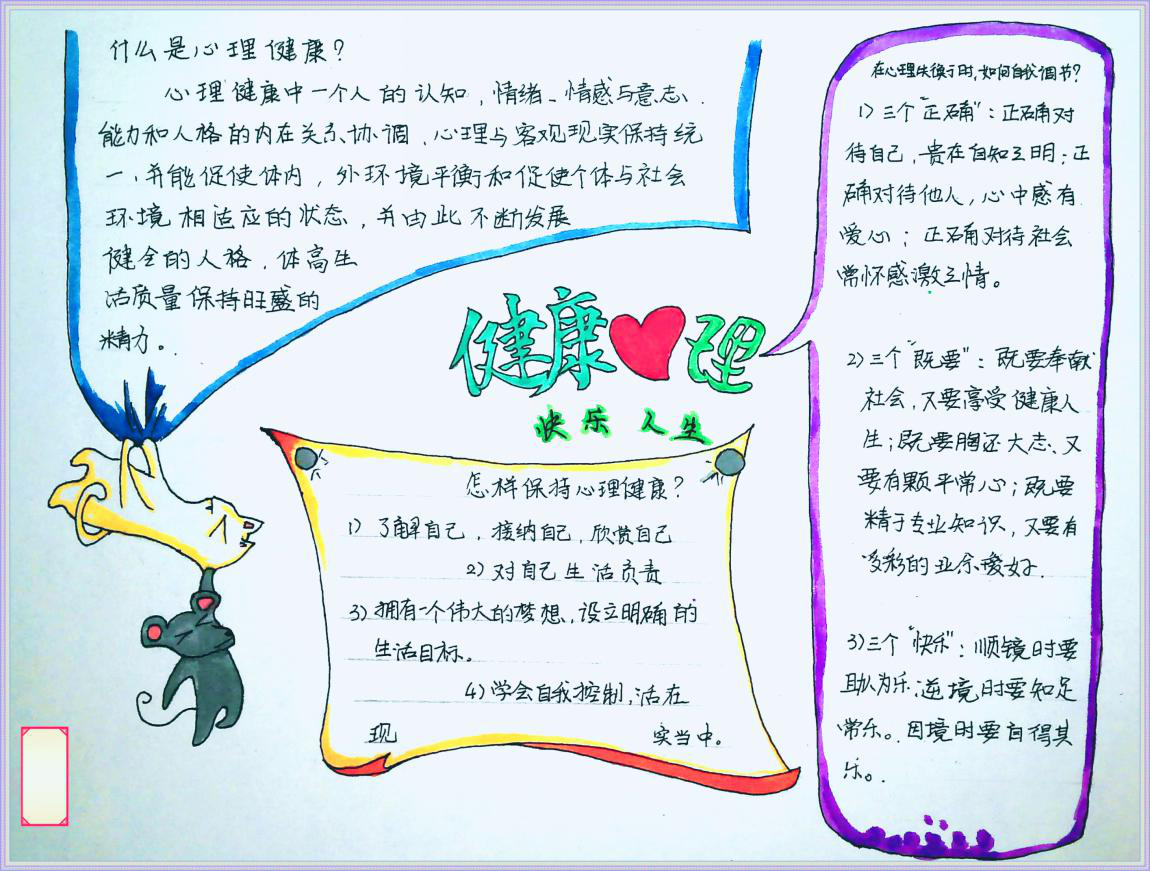 什么是心理健康?
心理健康中一个人的认知,情绪、情感与意志、
能力和人格的内在关系协调,心理与客观现实保持统
一,并能促使体内,外环境平衡和促使个体与社会
环境相适应的状态,并由此不断发展
健全的人格,体高生
活质量保持旺盛的
精力。
健康❤理
快乐人生
怎样保持心理健康?
1)了解自己,接纳自己,欣赏自己
2)对自己生活负责
3)拥有一个伟大的梦想、设立明确的
生活目标。
4)学会自我控制,活在
现实当中。
在心理失衡于时,如何自我调节?
1)三个"正确":正确对
待自己,贵在自知之明;正
确对待他人,心中感有
爱心;正确对待社会
常怀感激之情。
2)三个"既要":既要奉献
社会,又要享受健康人
生;既要胸还大志、又
要有颗平常心;既要
精于专业知识,又要有
多彩的业余爱好.
3)三个"快乐":顺镜时要
助人为乐.逆境时要知足
常乐。困境时要自得其
乐。